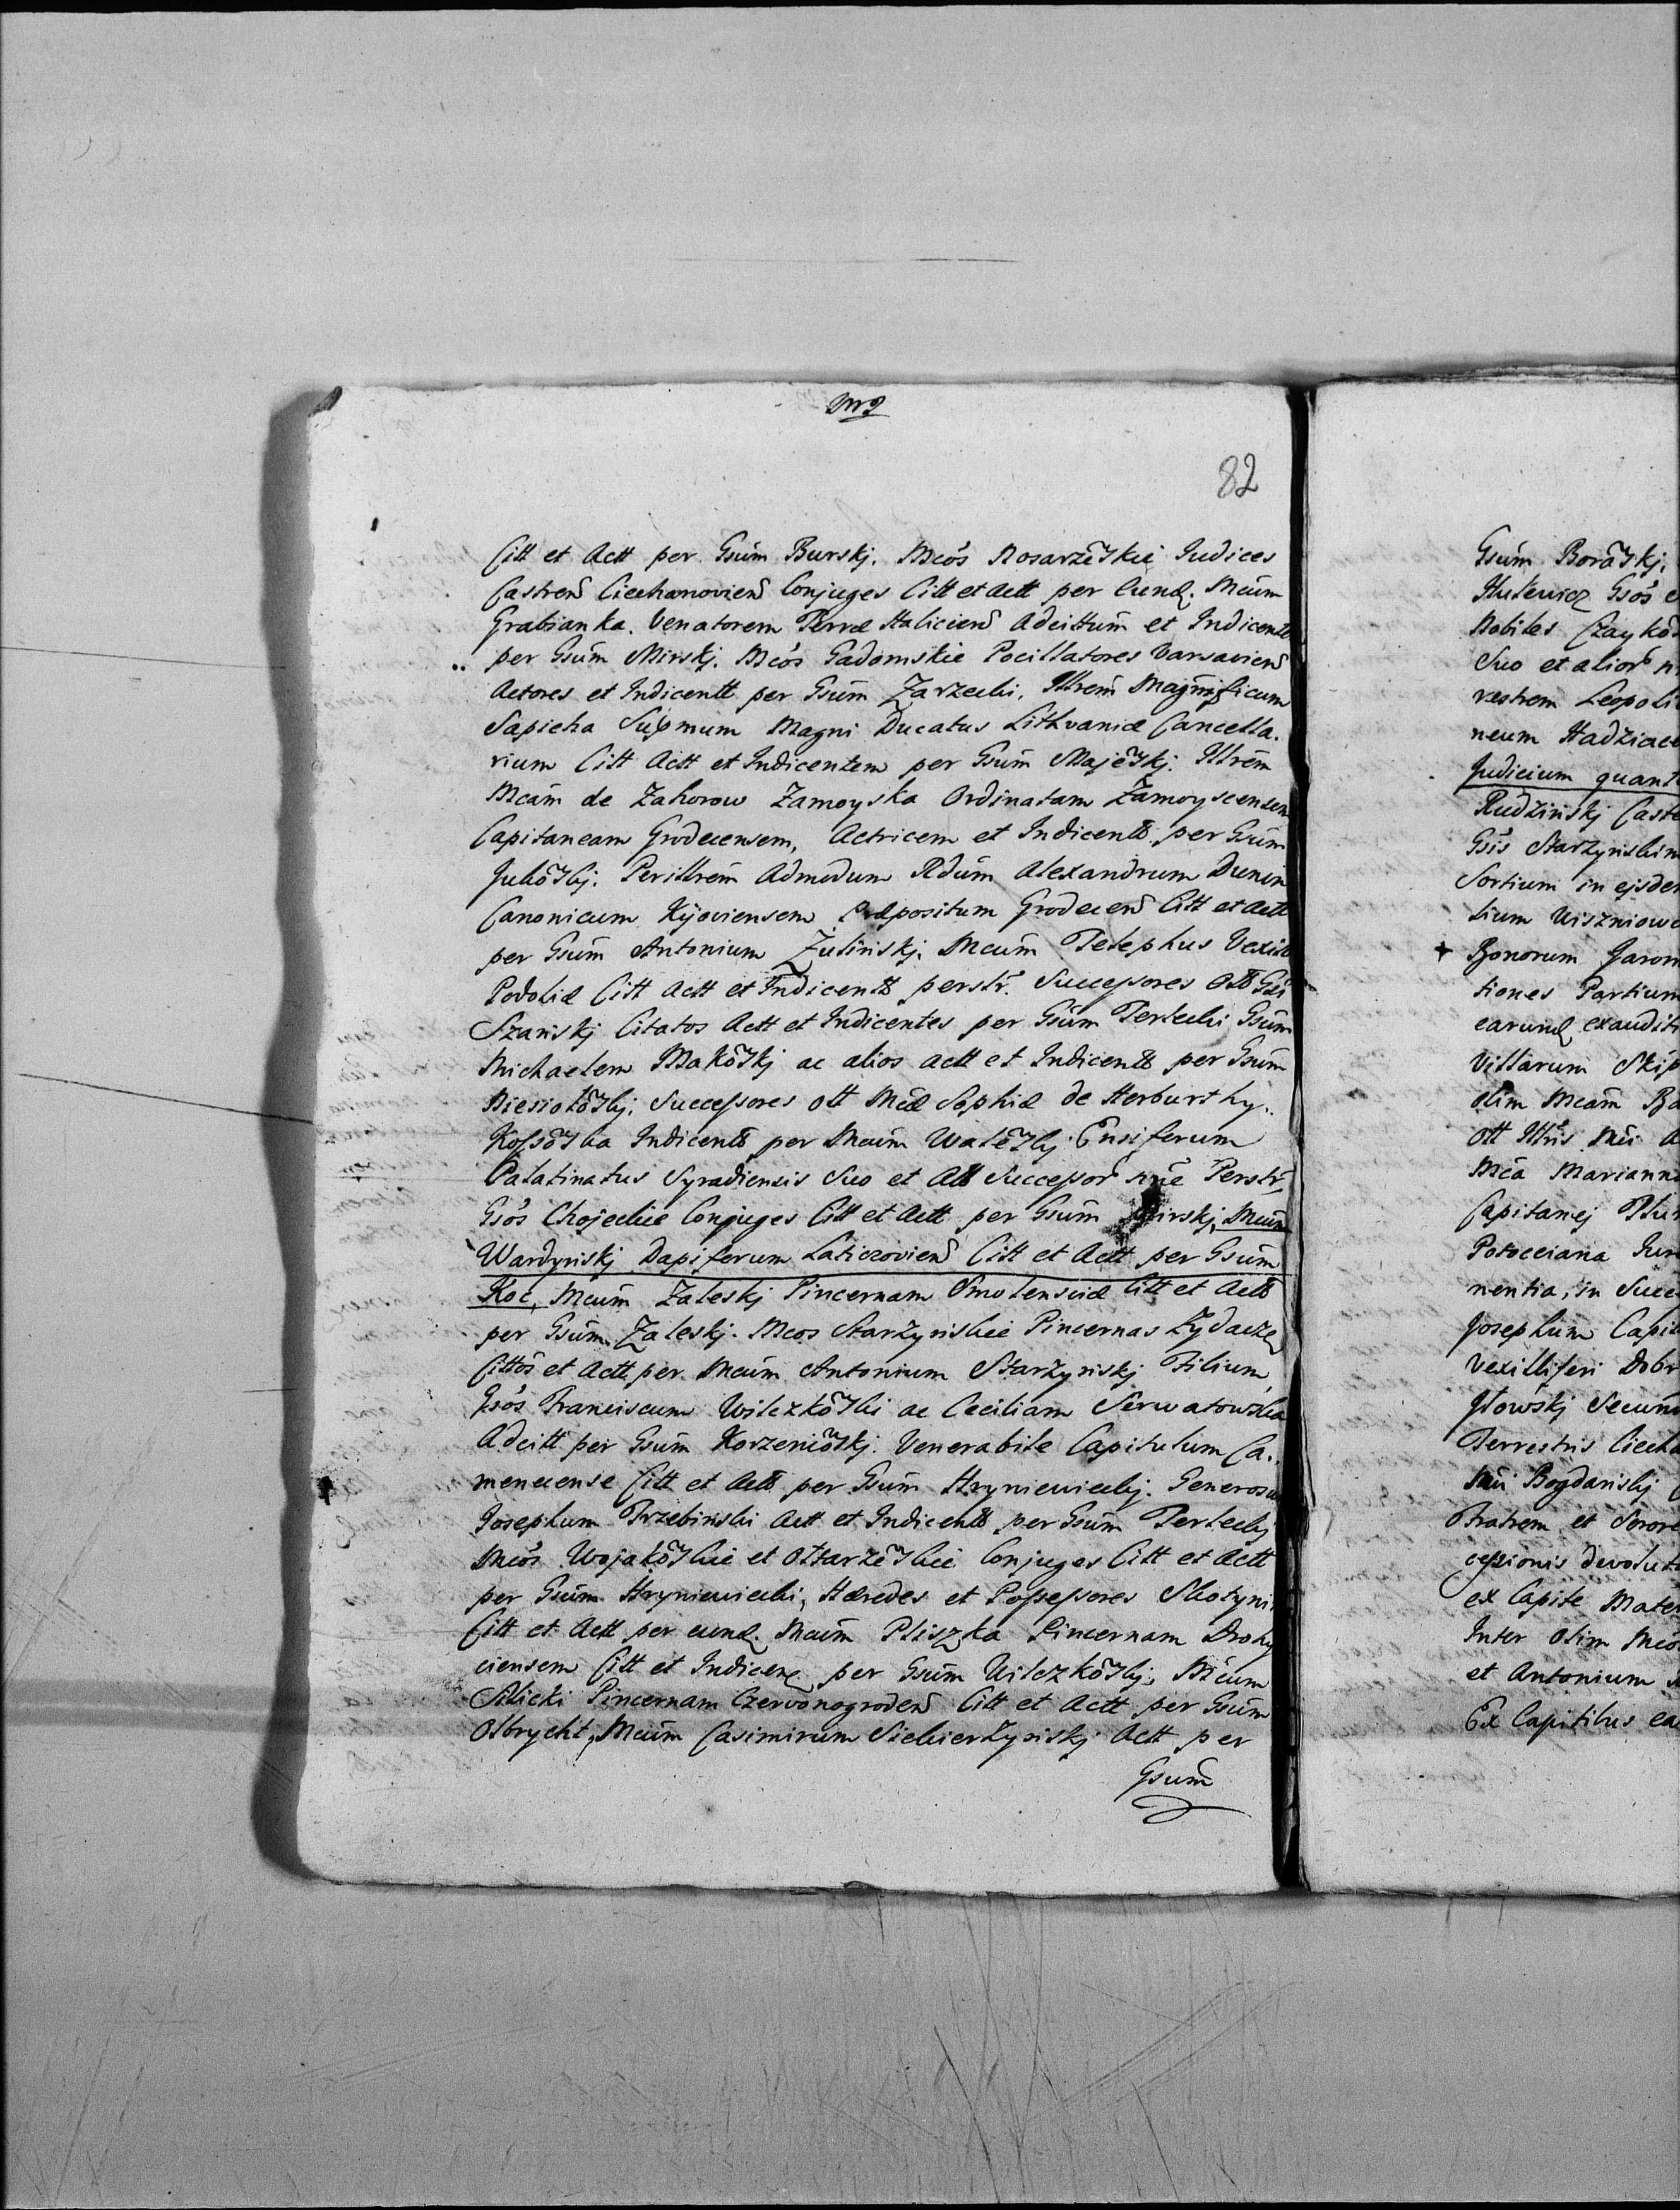 82
Citt et Actt per Gsum̄ Burskj. Mcos Kosarzēskie Iudices
Castren̄ Ciechanovien̄ Conjuges Citt et Actt per Eund. Mcum̄
Grabianka. Venatorem Terræ Halicien̄ Adcittum̄ et Indicentt
per Gsum̄ Mirskj. Mcos Gadomskie Pocillatores Varsavien̄
Actores et Indicentt per Gsum̄ Zarzecki, Illrem̄ Magnificum
Sapieha Supmum Magni Ducatus Lithvaniæ Cancella.
rium Citt Actt et Indicentem per Gsum̄ Majēskj. Illrem̄
Mcam̄ de Zahorow Zamoyska Ordinatam Zamoyscensem
Capitaneam Grodecensem, Actricem et Indicentt per Gsum̄
Jukōskj. Perillrem̄ Admodum Rdum̄ Alexandrum Dunin
Canonicum Kijoviensem Præpositum Grodecen̄ Citt et Actt
per Gsum̄ Antonium Zulinskj. Mcum̄ Telephus Vexill
Podoliæ Citt Actt et Indicentt perstr̄. Successores Ott Gsi
Szanskj Citatos Actt et Indicentes per Gsum̄ Terlecki Gsum̄
Michaelem Makōskj ac alios Actt et Indicentt per Gsum̄
Niesiolōskj. Successores Ott Mcæ Sophiæ de Herburthy.
Kossōska Indicentt per Mcum̄ Walēskj Ensiferum
Palatinatus Syradiensis Suo et Att Successor̄ nn̄e Perstr̄,
Gsos Chojeckie Conjuges Citt et Actt per Gsum̄ Mirskj, Mcum̄
Wardynskj Dapiferum Laticzovien̄ Citt et Actt per Gsum̄
Koc, Mcum̄ Zaleskj Pincernam Smolensciæ Citt et Actt
per Gsum̄ Zaleskj. Mcos Starzynskie Pincernas Zydacze
Cittos et Actt per Mcum̄ Antonium Starzynskj Filium,
Gsos Franciscum Wilczkōski ac Ceciliam Serwatowska
Adcitt per Gsum̄ Korzeniōskj. Venerabile Capitulum Ca.
menecense Citt et Actt per Gsum̄ Hryniewieckj. Generosum
Josephum Trzebinski Actt et Indicentt per Gsum̄ Terleckj
Mcos Wojakōskie et Ottarzēskie Conjuges Citt et Actt
per Gsum̄ Hryniewiecki, Hæredes et Possessores Skotyni
Citt et Actt per eund. Mcum̄ Pliszka Pincernam Drohy
ciensem Citt et Indicen per Gsum̄ Wilczkōskj, Mcum̄
Silicki Pincernam Czervonogroden̄ Citt et Actt per Gsum̄
Olbrycht, Mcum̄ Casimirum Siekierzynskj Actt per
Gsum̄
Gsum̄ Borōskj,
Hulewicz Gsos
Nobiles Czayko
Suo et alior
restrem Leopoli
neum Hadziac
Judicium quant
Rudzinskj Caste
Gsis Starzynskim
Sortium in ejsdem
tium Wiszniow
+ Bonorum Jaron
tiones Partium
earund exaudit
Villarum Skip
olim Mcam̄ Ba
Ott Illris Mci
Mca Marianna
Capitanej
Potocciana Jur
nentia, in Succ
Josephum Capit
Vexilliferi Dobr
Głowskj Secum
Terrestris Ciech
Mci Bogdanskj
Fratrem et Soror
cessionis devolut
ex Capite Mater
Inter olim Mcos
et Antonium
Ex Capitibus ea